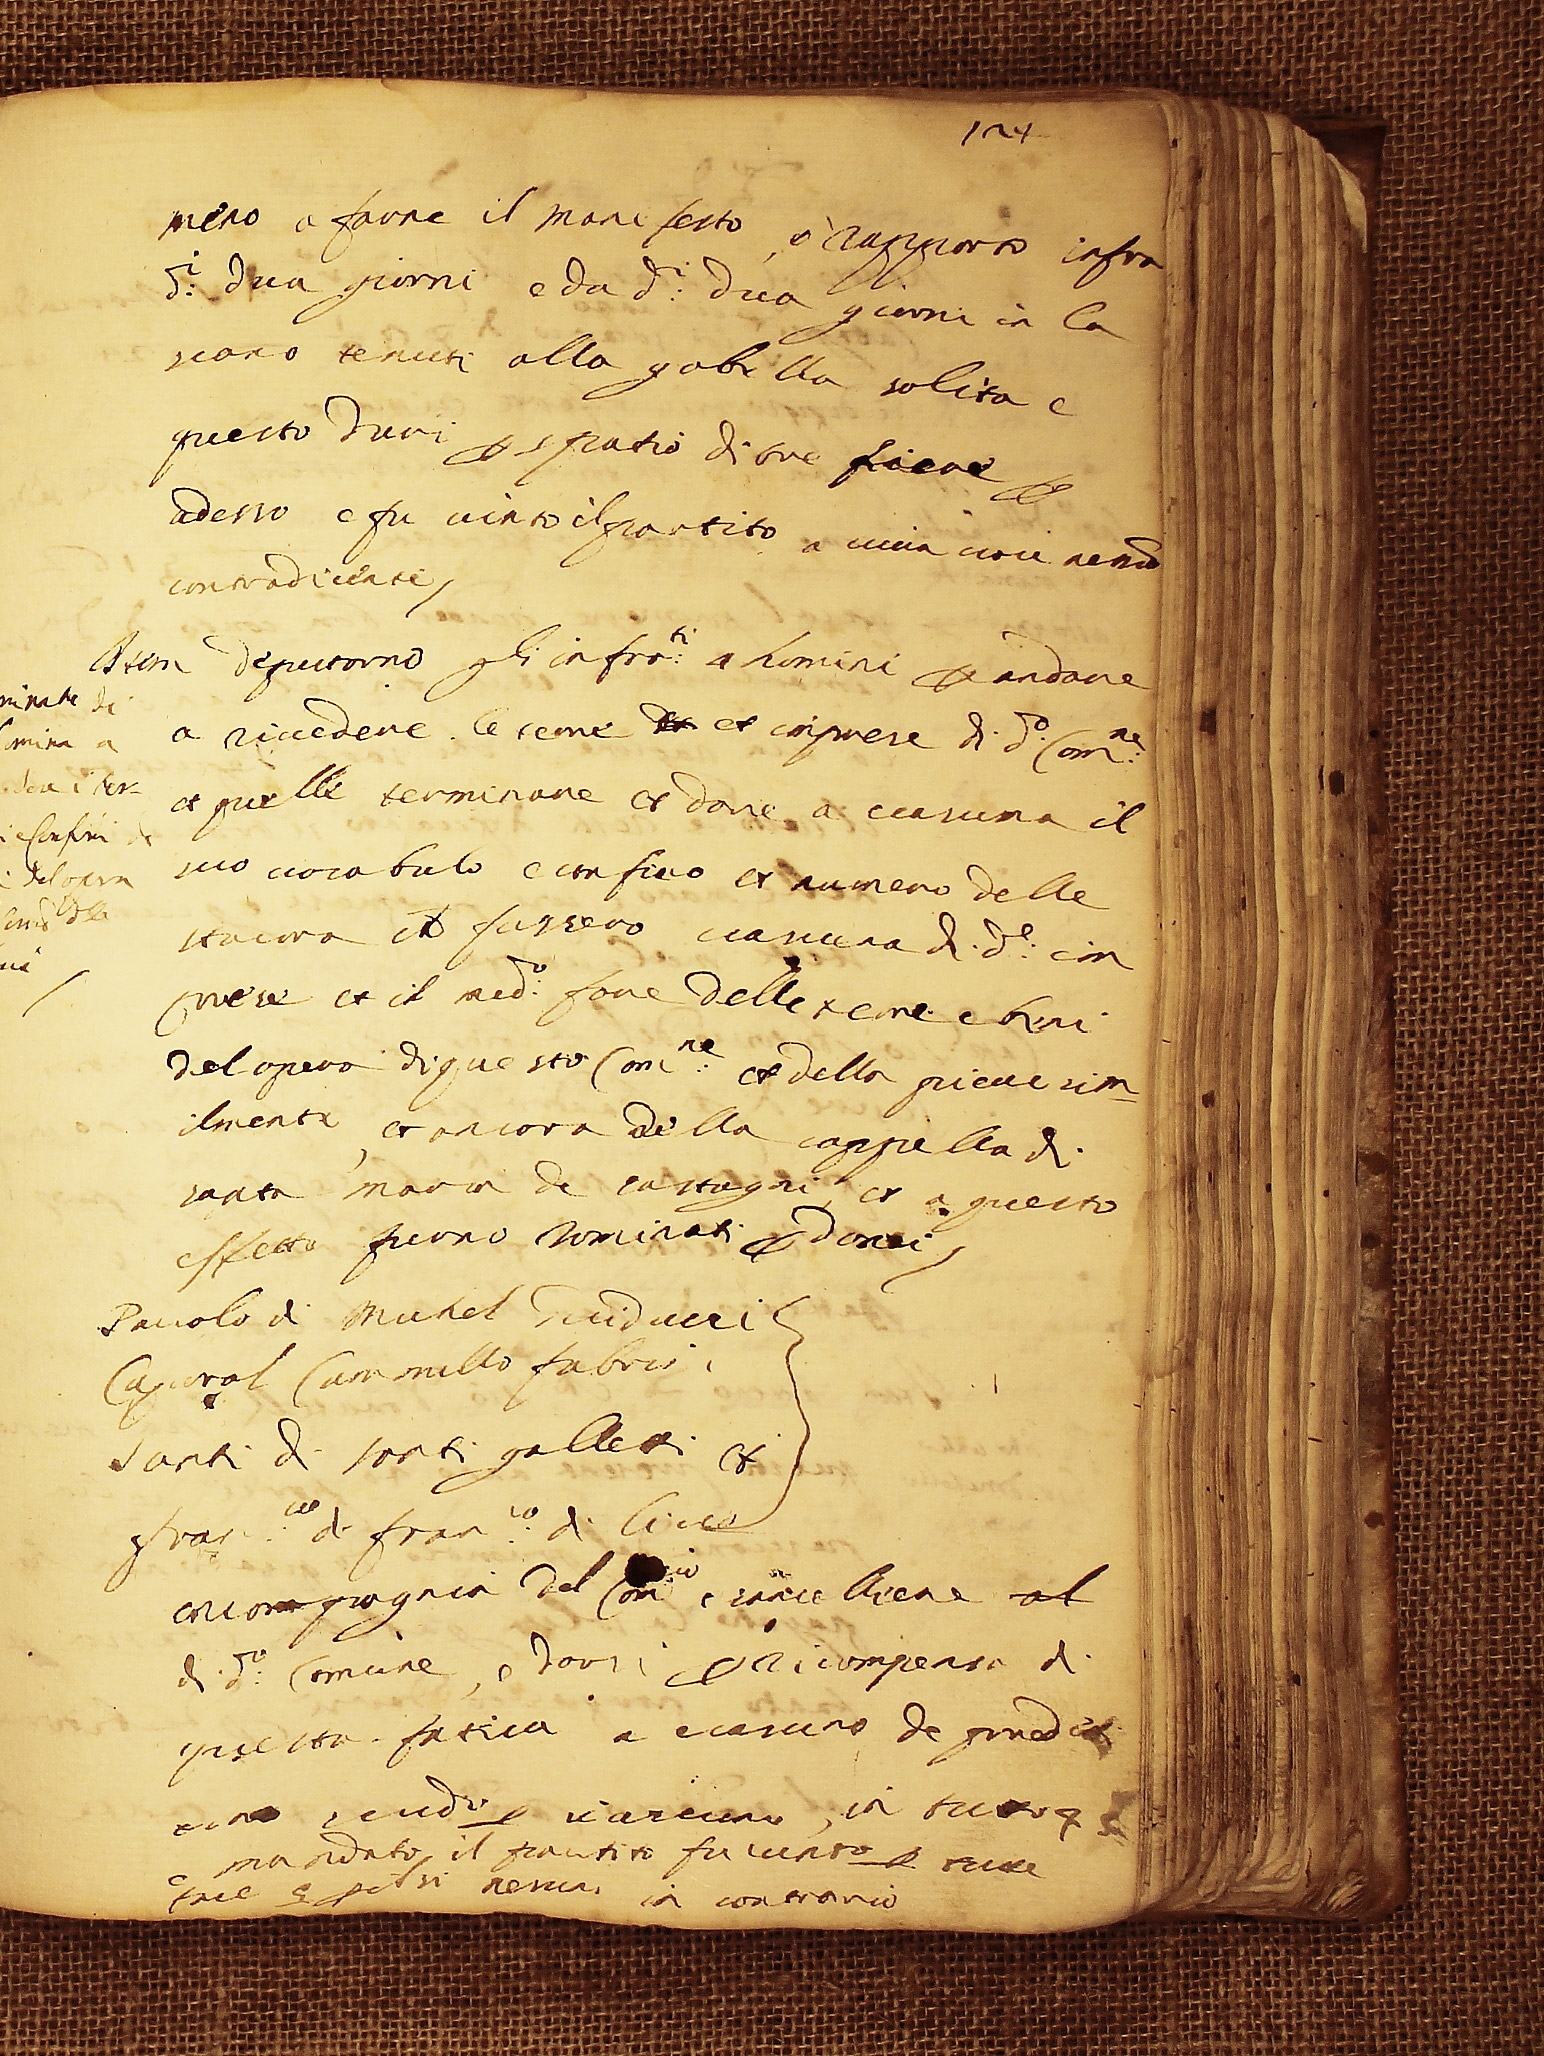 124
meno a farne il manifesto, o rapporto infra
d.i dua giorni e da d.i dua giorni in la
siano tenuti alla gabella solita e
questo duri p spatio di tre fiere p
adesso e fu vinto il partito a viva voce
contradicente,
Item deputorno gli infra.ti 4 homini p andare
a rivedere le terre et imprese di d.o Com.ne
et quelle terminare et dare a ciascuna il
suo vocabulo e confino et numero delle
staiora ch fussero ciascuna di d.e im
prese et il med.o fare delle terre e beni
del opera di questo Com.ne et della pieve sim
ilmente, et ancora della cappella di
santa maria de castagni, et a questo
effetto furno nominati p
minate di
homini a
i Confini de
del opera
Pauolo di Michel Guiducci
Caporal Cammillo fabrii
Santi di santi galletti et
fran.co di fran.co di
compagnia del Com e cancelliere
di d.o Comune, e p ricompensa di
questa fatica a ciascuno de
uno scudo p ciascuno, in tutto
mandato, il partito fu vinto p
in contrario